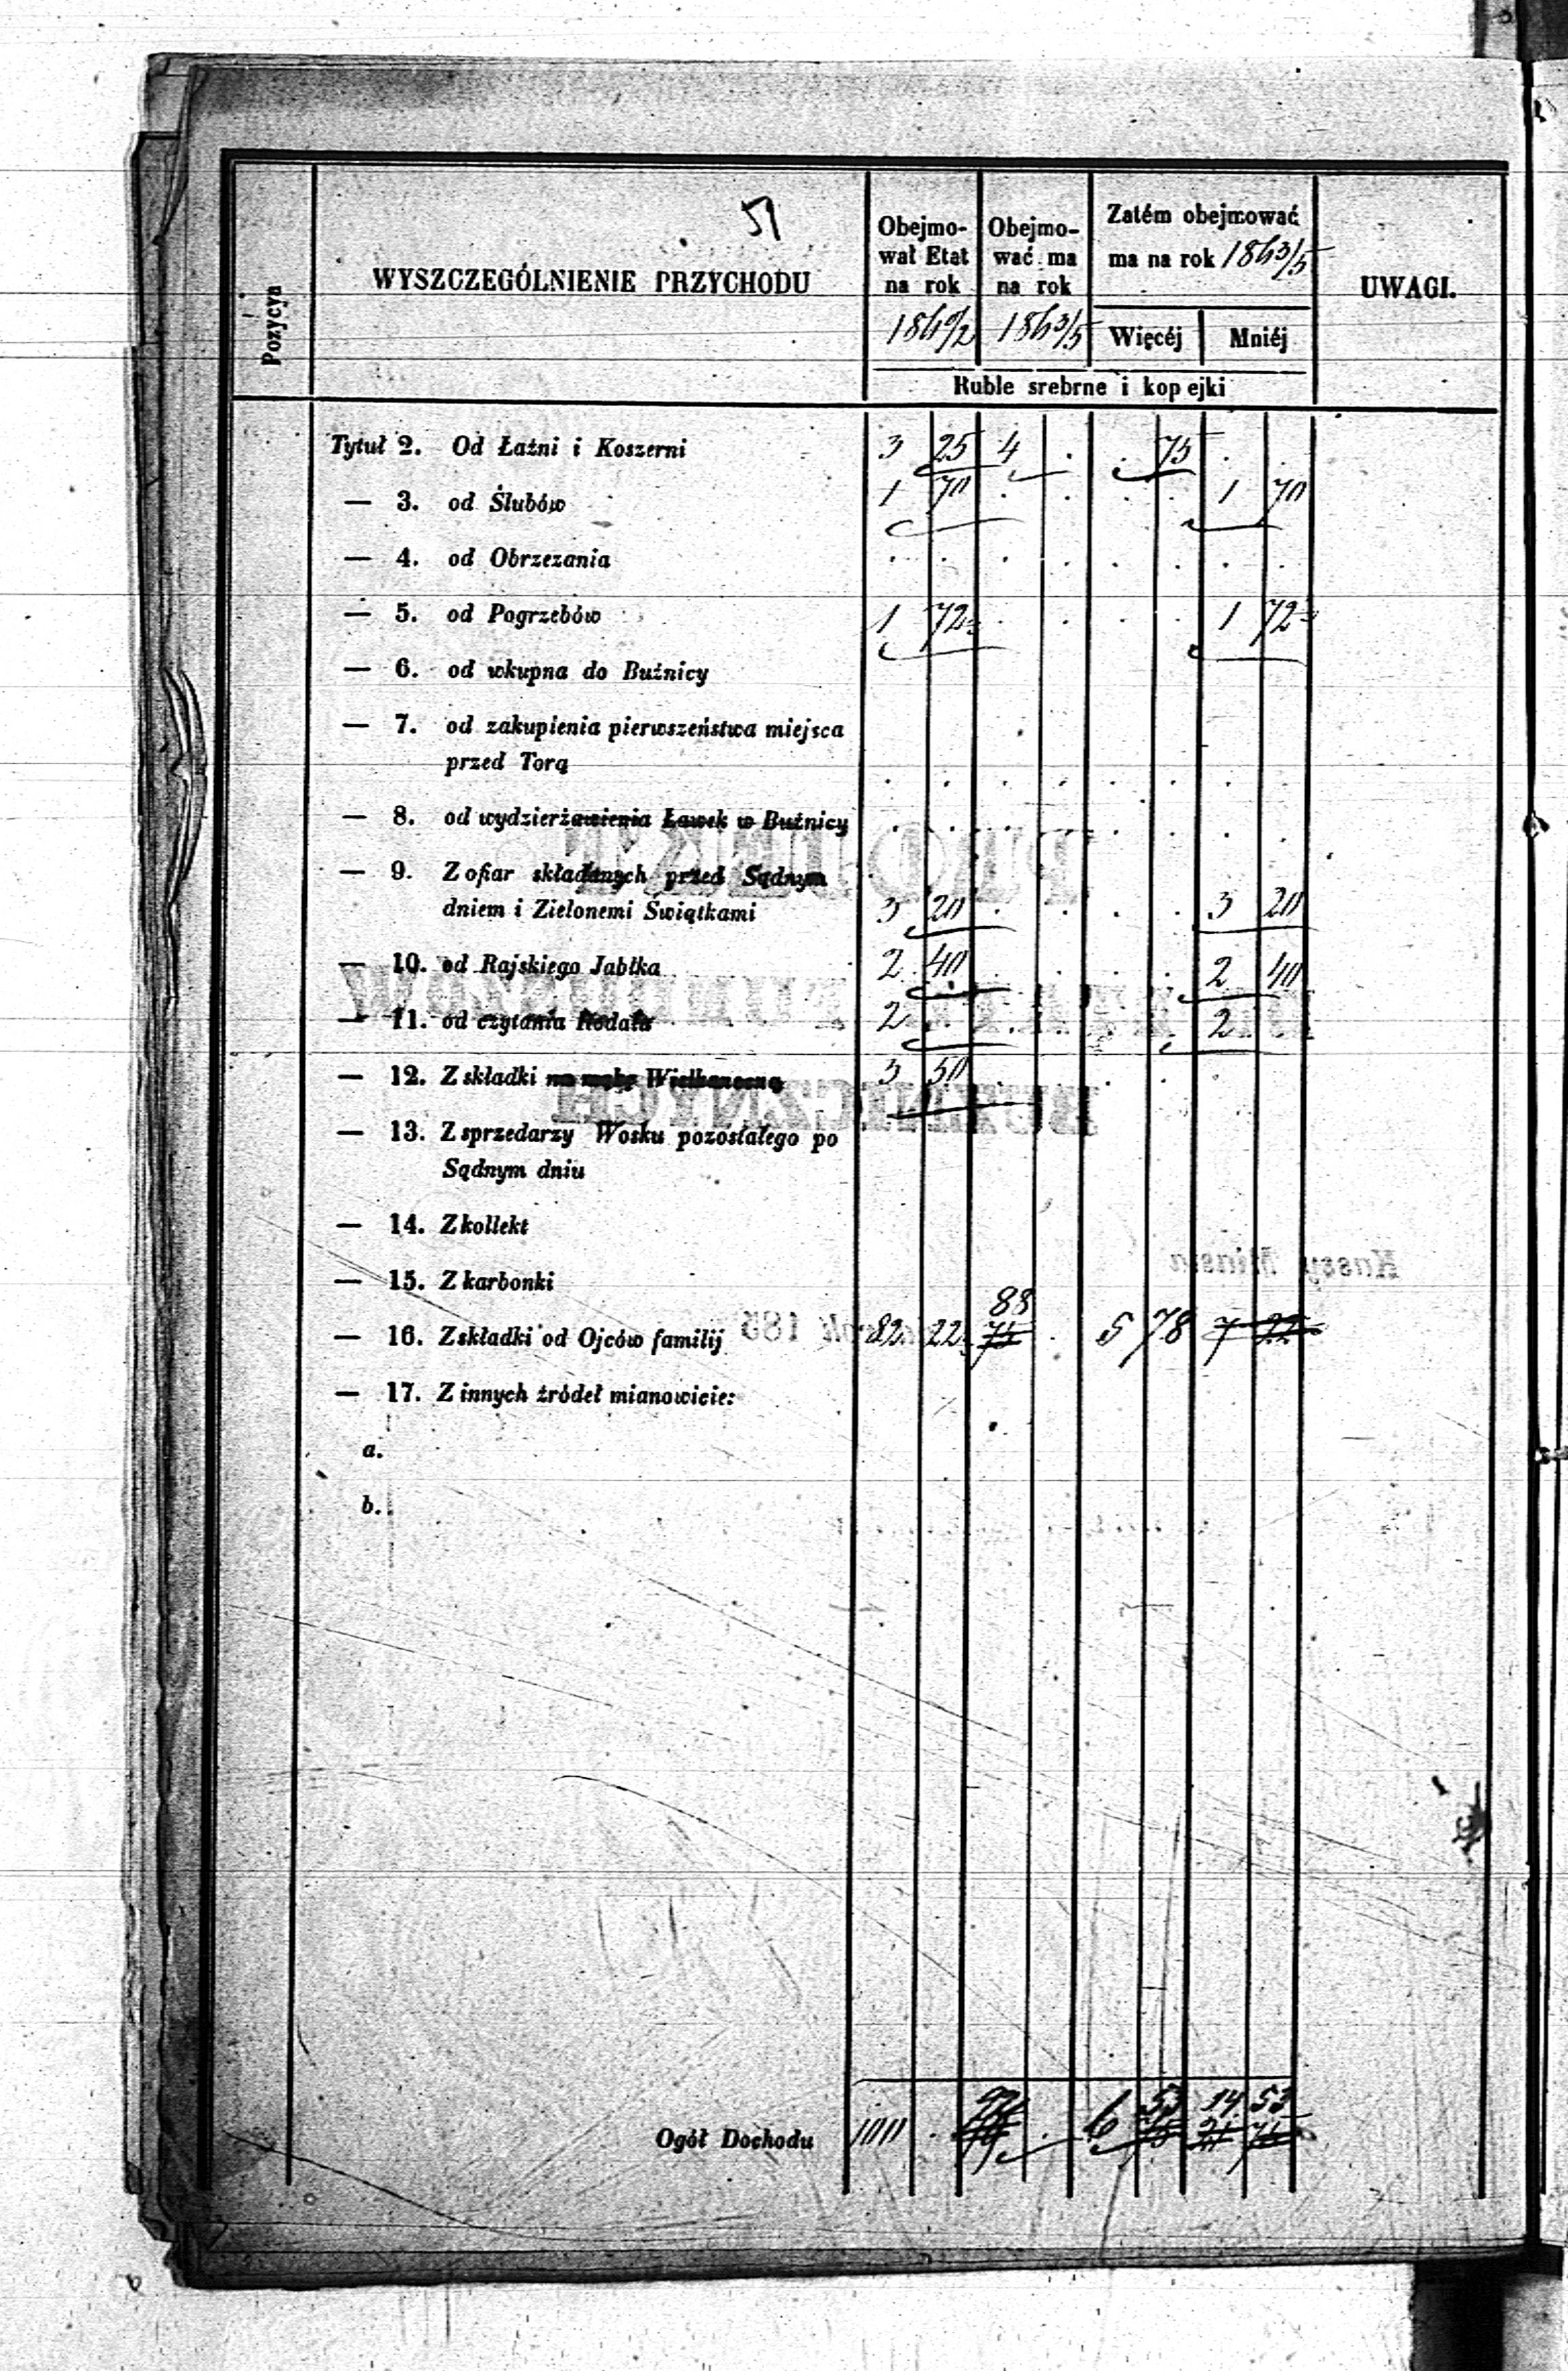 51
Pozycya
WYSZCZEGÓLNIENIE PRZYCHODU
Obejmo-
wał Etat
na rok
1860/2
Obejmo-
wać ma
na rok
1863/5
Zatém obejmować
ma na rok 1863/5
Więcéj Mniéj
UWAGI.
Ruble srebrne i kopejki
Tytuł 2. Od Łaźni i Koszerni 3 25 4 . . 75 . .
— 3. od Ślubów 1 70 . . . . 1 70
— 4. od Obrzezania . . . . . . . .
— 5. od Pogrzebów 1 72 . . . . 1 72
— 6. od wkupna do Buźnicy
— 7. od zakupienia pierwszeństwa miejsca
przed Torą . . . . . . . .
— 8. od wydzierżawienia Ławek w Buźnicy . . . . . . . .
— 9. Z ofiar składanych przed Sądnym
dniem i Zielonemi Świątkami 3 20 . . . . 3 20
— 10. od Rajskiego Jabłka 2 40 . . . . 2 40
— 11. od czytania Rodału 2 . . . . . 2
— 12. Z składki na mąkę Wielkanocną 3 50 . . . .
— 13. Z sprzedarzy Wosku pozostałego po
Sądnym dniu
— 14. Z kollekt
— 15. Z karbonki
88
— 16. Z składki od Ojców familij 82 22 75 . 5 78 7 22
— 17. Z innych źródeł mianowicie:
a.
b.
92 53 14 53
Ogół Dochodu 100 . . 6 75 21 75